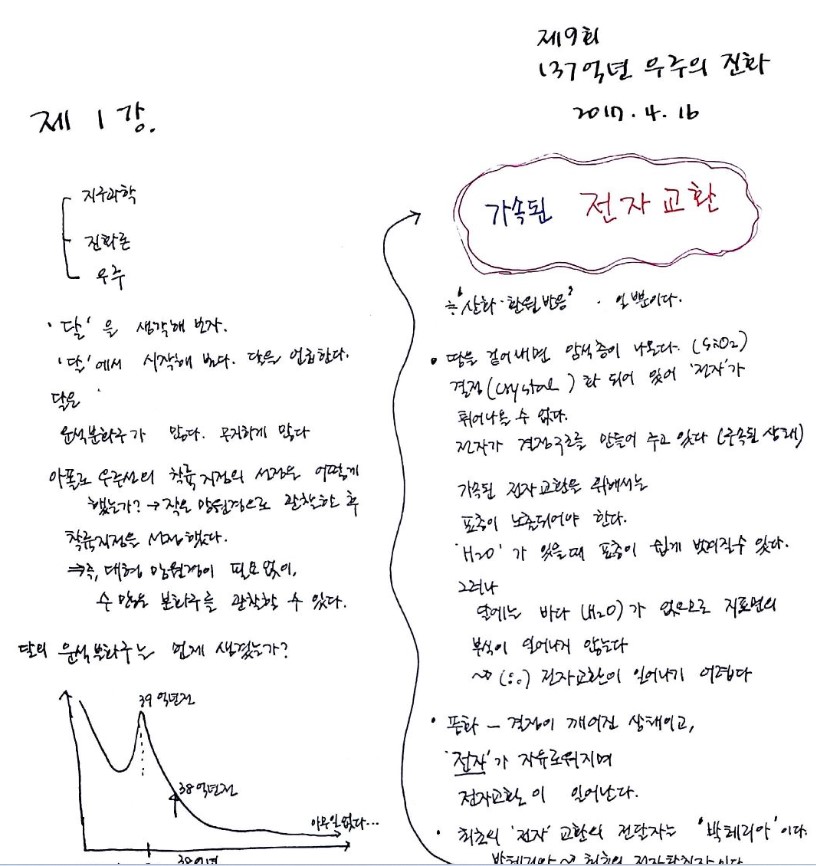 제9회
137억년 우주의 진화
2017. 4. 16
제 1 강.
지구과학
진화론
우주
· '달'을 생각해 보자.
'달'에서 시작해 본다. 달을 언급한다.
달은
운석분화구가 많다. 무지하게 많다
아폴로 우주선의 착륙지점의 선정을 어떻게
했는가? → 작은 망원경으로 관찰한 후
착륙지점을 선정했다.
⇒ 즉, 대형 망원경이 필요 없이,
수 많은 분화구를 관찰할 수 있다.
달의 운석분화구는 언제 생겼는가?
39억년전
38억년전
아무일 없다...
38억년
가속된 전자교환
≒ '산화·환원반응' · 일뿐이다.
· 땅을 걷어내면 암석층이 나온다. (SiO2)
결정(crystal)화 되어 있어 '전자'가
튀어나올 수 없다.
전자가 결정구조를 만들어 주고 있다 (구속된 상태)
가속된 전자교환을 위해서는
표층이 노출되어야 한다.
'H2O'가 있을때 표층이 쉽게 벗겨질수 있다.
그러나
달에는 바다(H2O)가 없으므로 지표면의
부식이 일어나지 않는다
전자교환이 일어나기 어렵다
· 풍화 — 결정이 깨어진 상태이고,
'전자'가 자유로워지며
전자교환이 일어난다.
· 최초의 '전자' 교환의 전달자는 '박테리아'이다.
박테리아 최초의